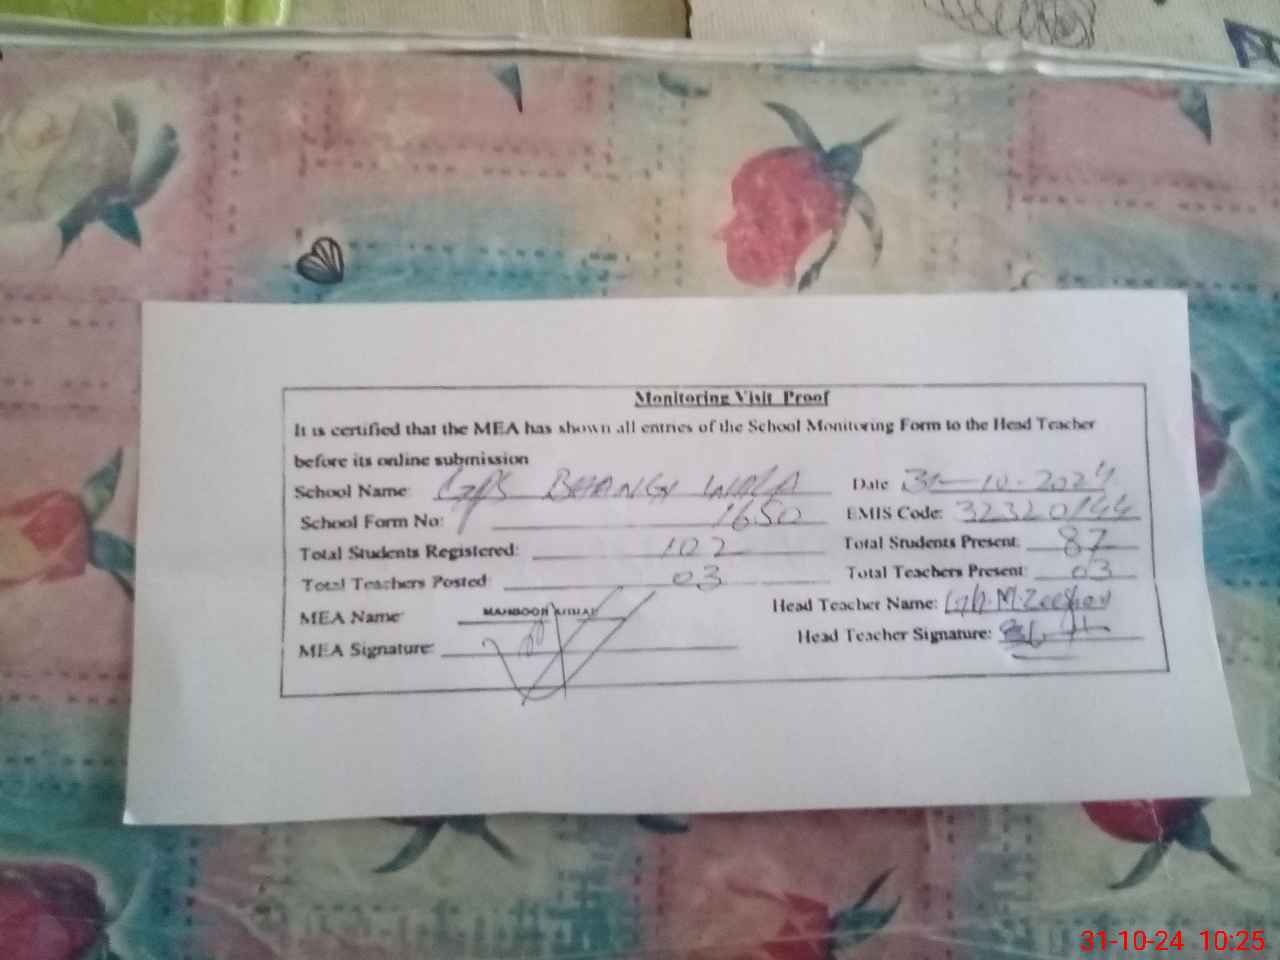 Monitoring Visit Proof
It is certified that the MEA has shown all entries of the School Monitoring Form to the Head Teacher
before its online submission
School Name: GPS BHANGI WALA Date 31-10-2024
School Form No: 1650 EMIS Code: 32320144
Total Students Registered: 102 Total Students Present: 87
Total Teachers Posted: 03 Total Teachers Present: 03
MEA Name: Head Teacher Name: M. Zeeshan
MEA Signature: Head Teacher Signature:
31-10-24 10:25